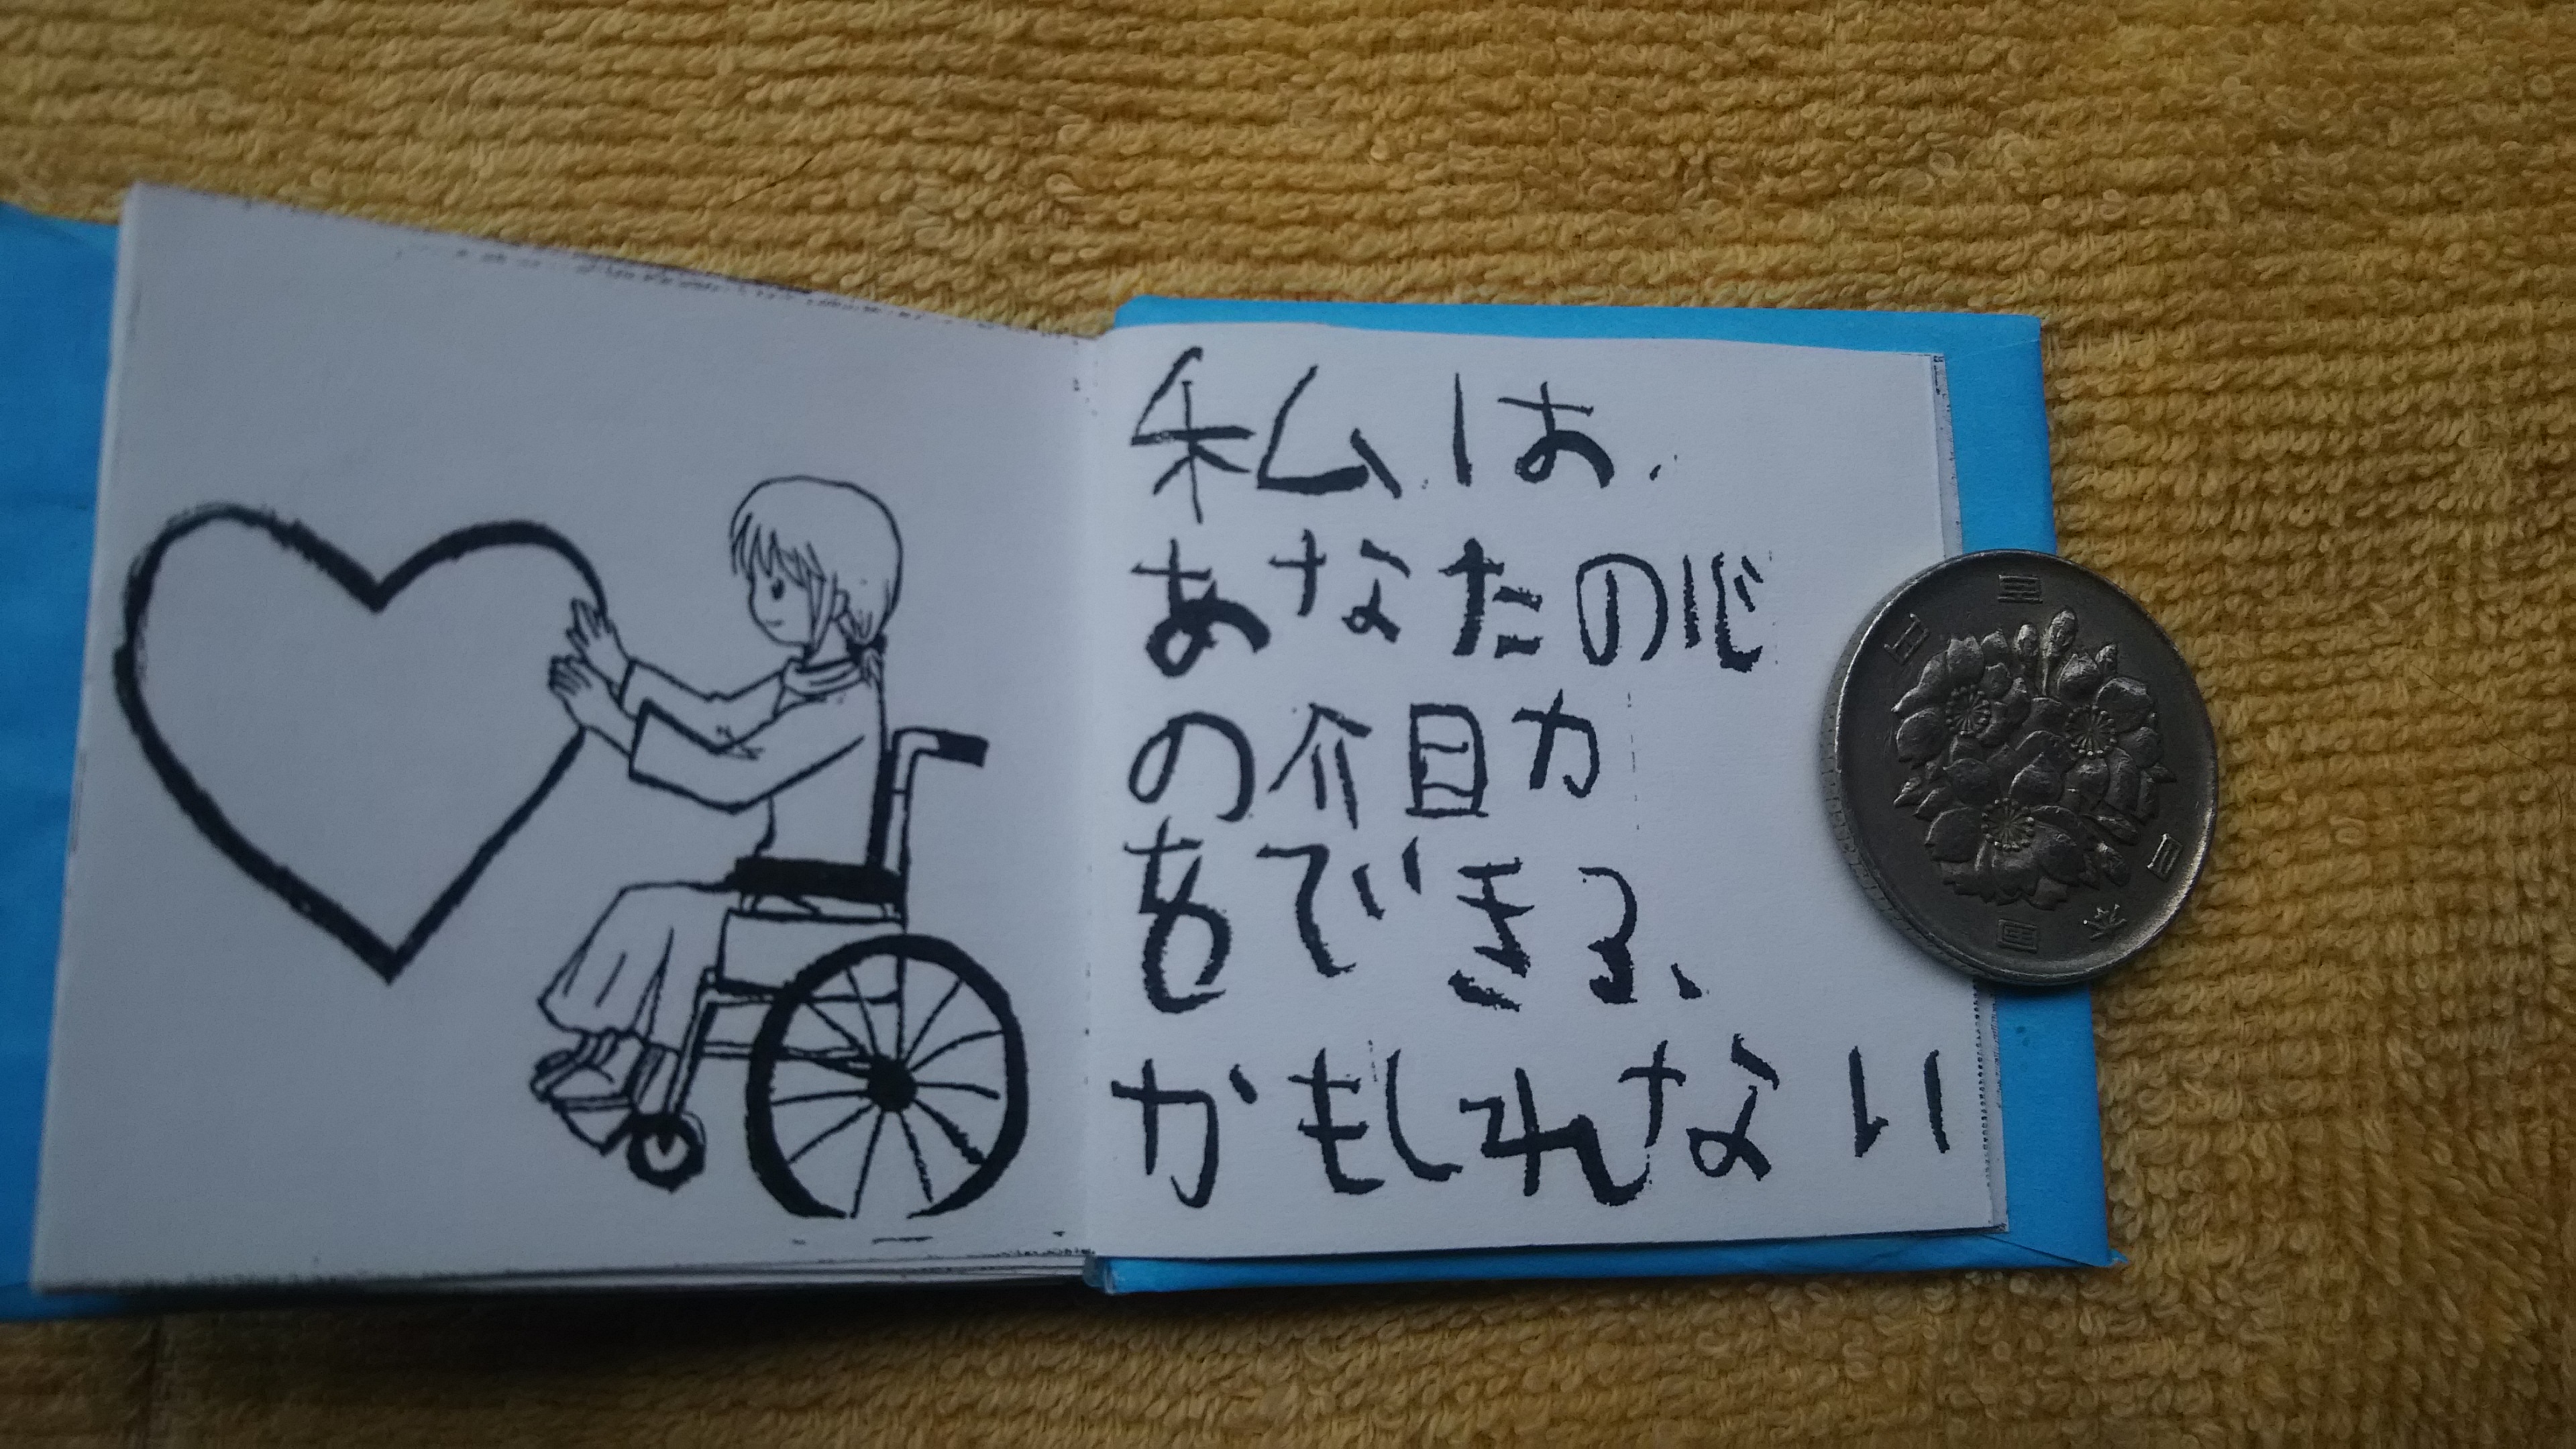 私は、
あなたの心
の介目力
をできる、
かもしれない
日本国
百円